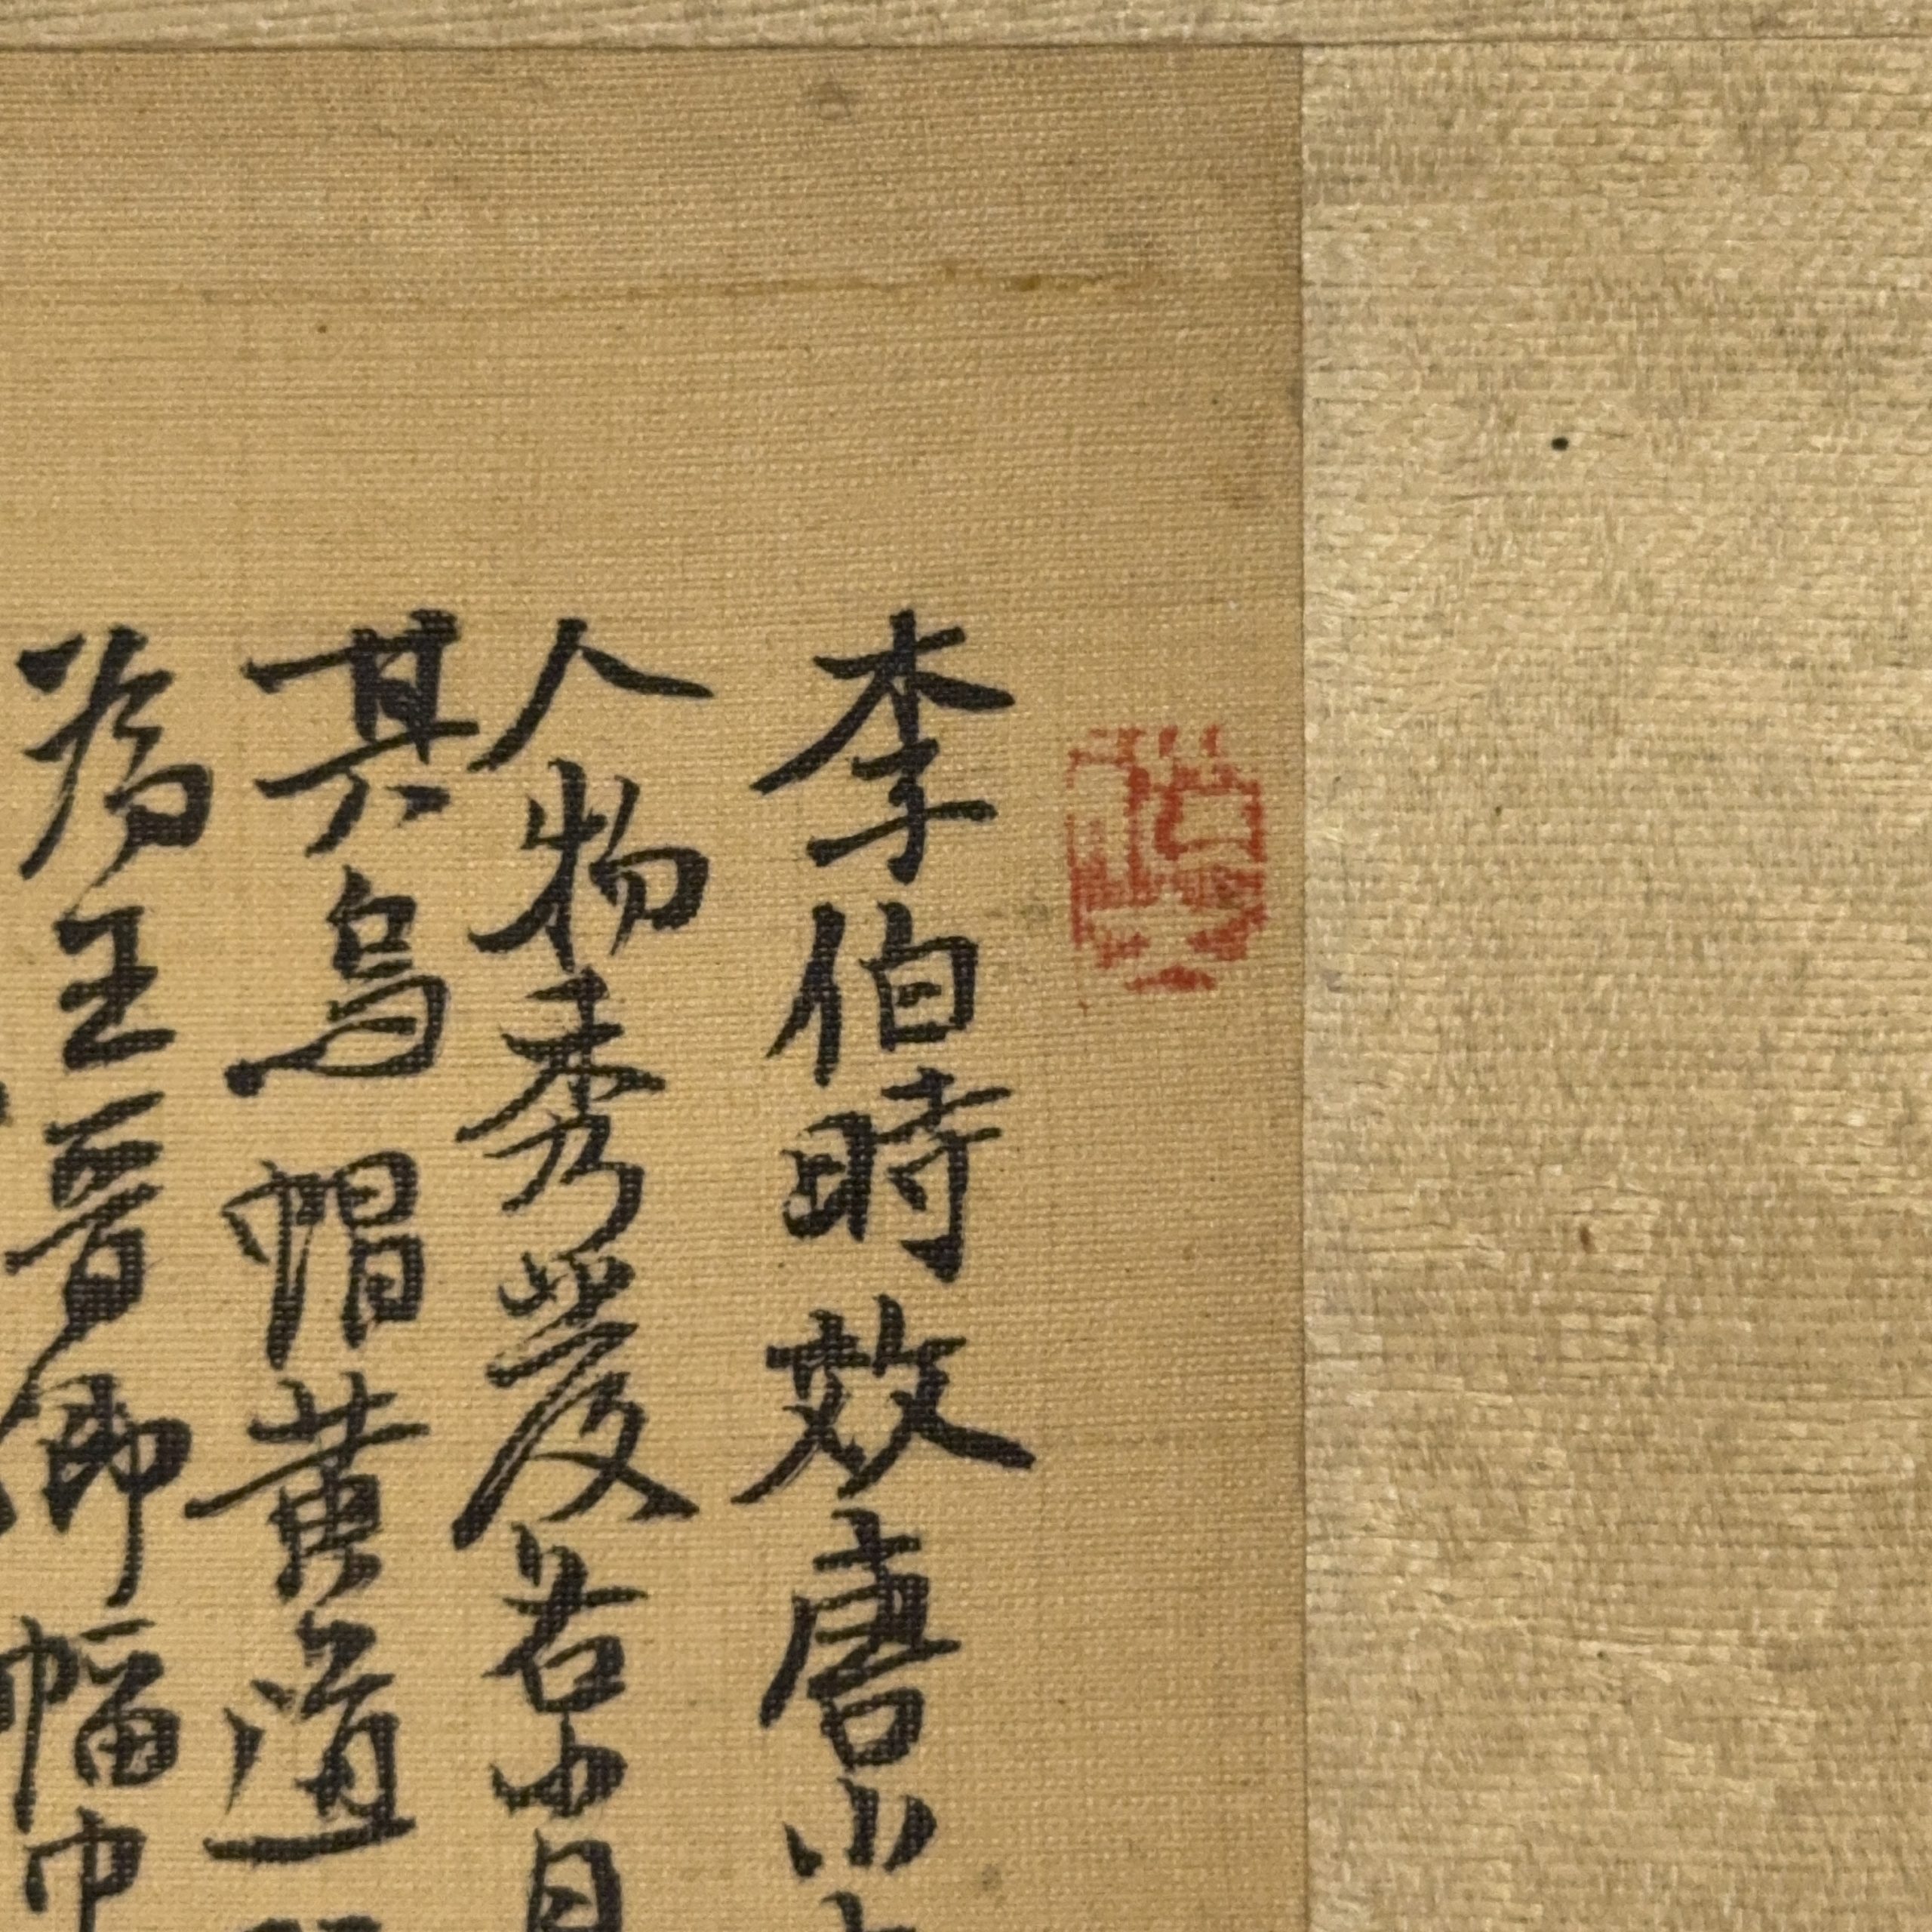 李伯時效唐小
人物秀發各肖
其烏帽黃道
為王晉卿幅巾